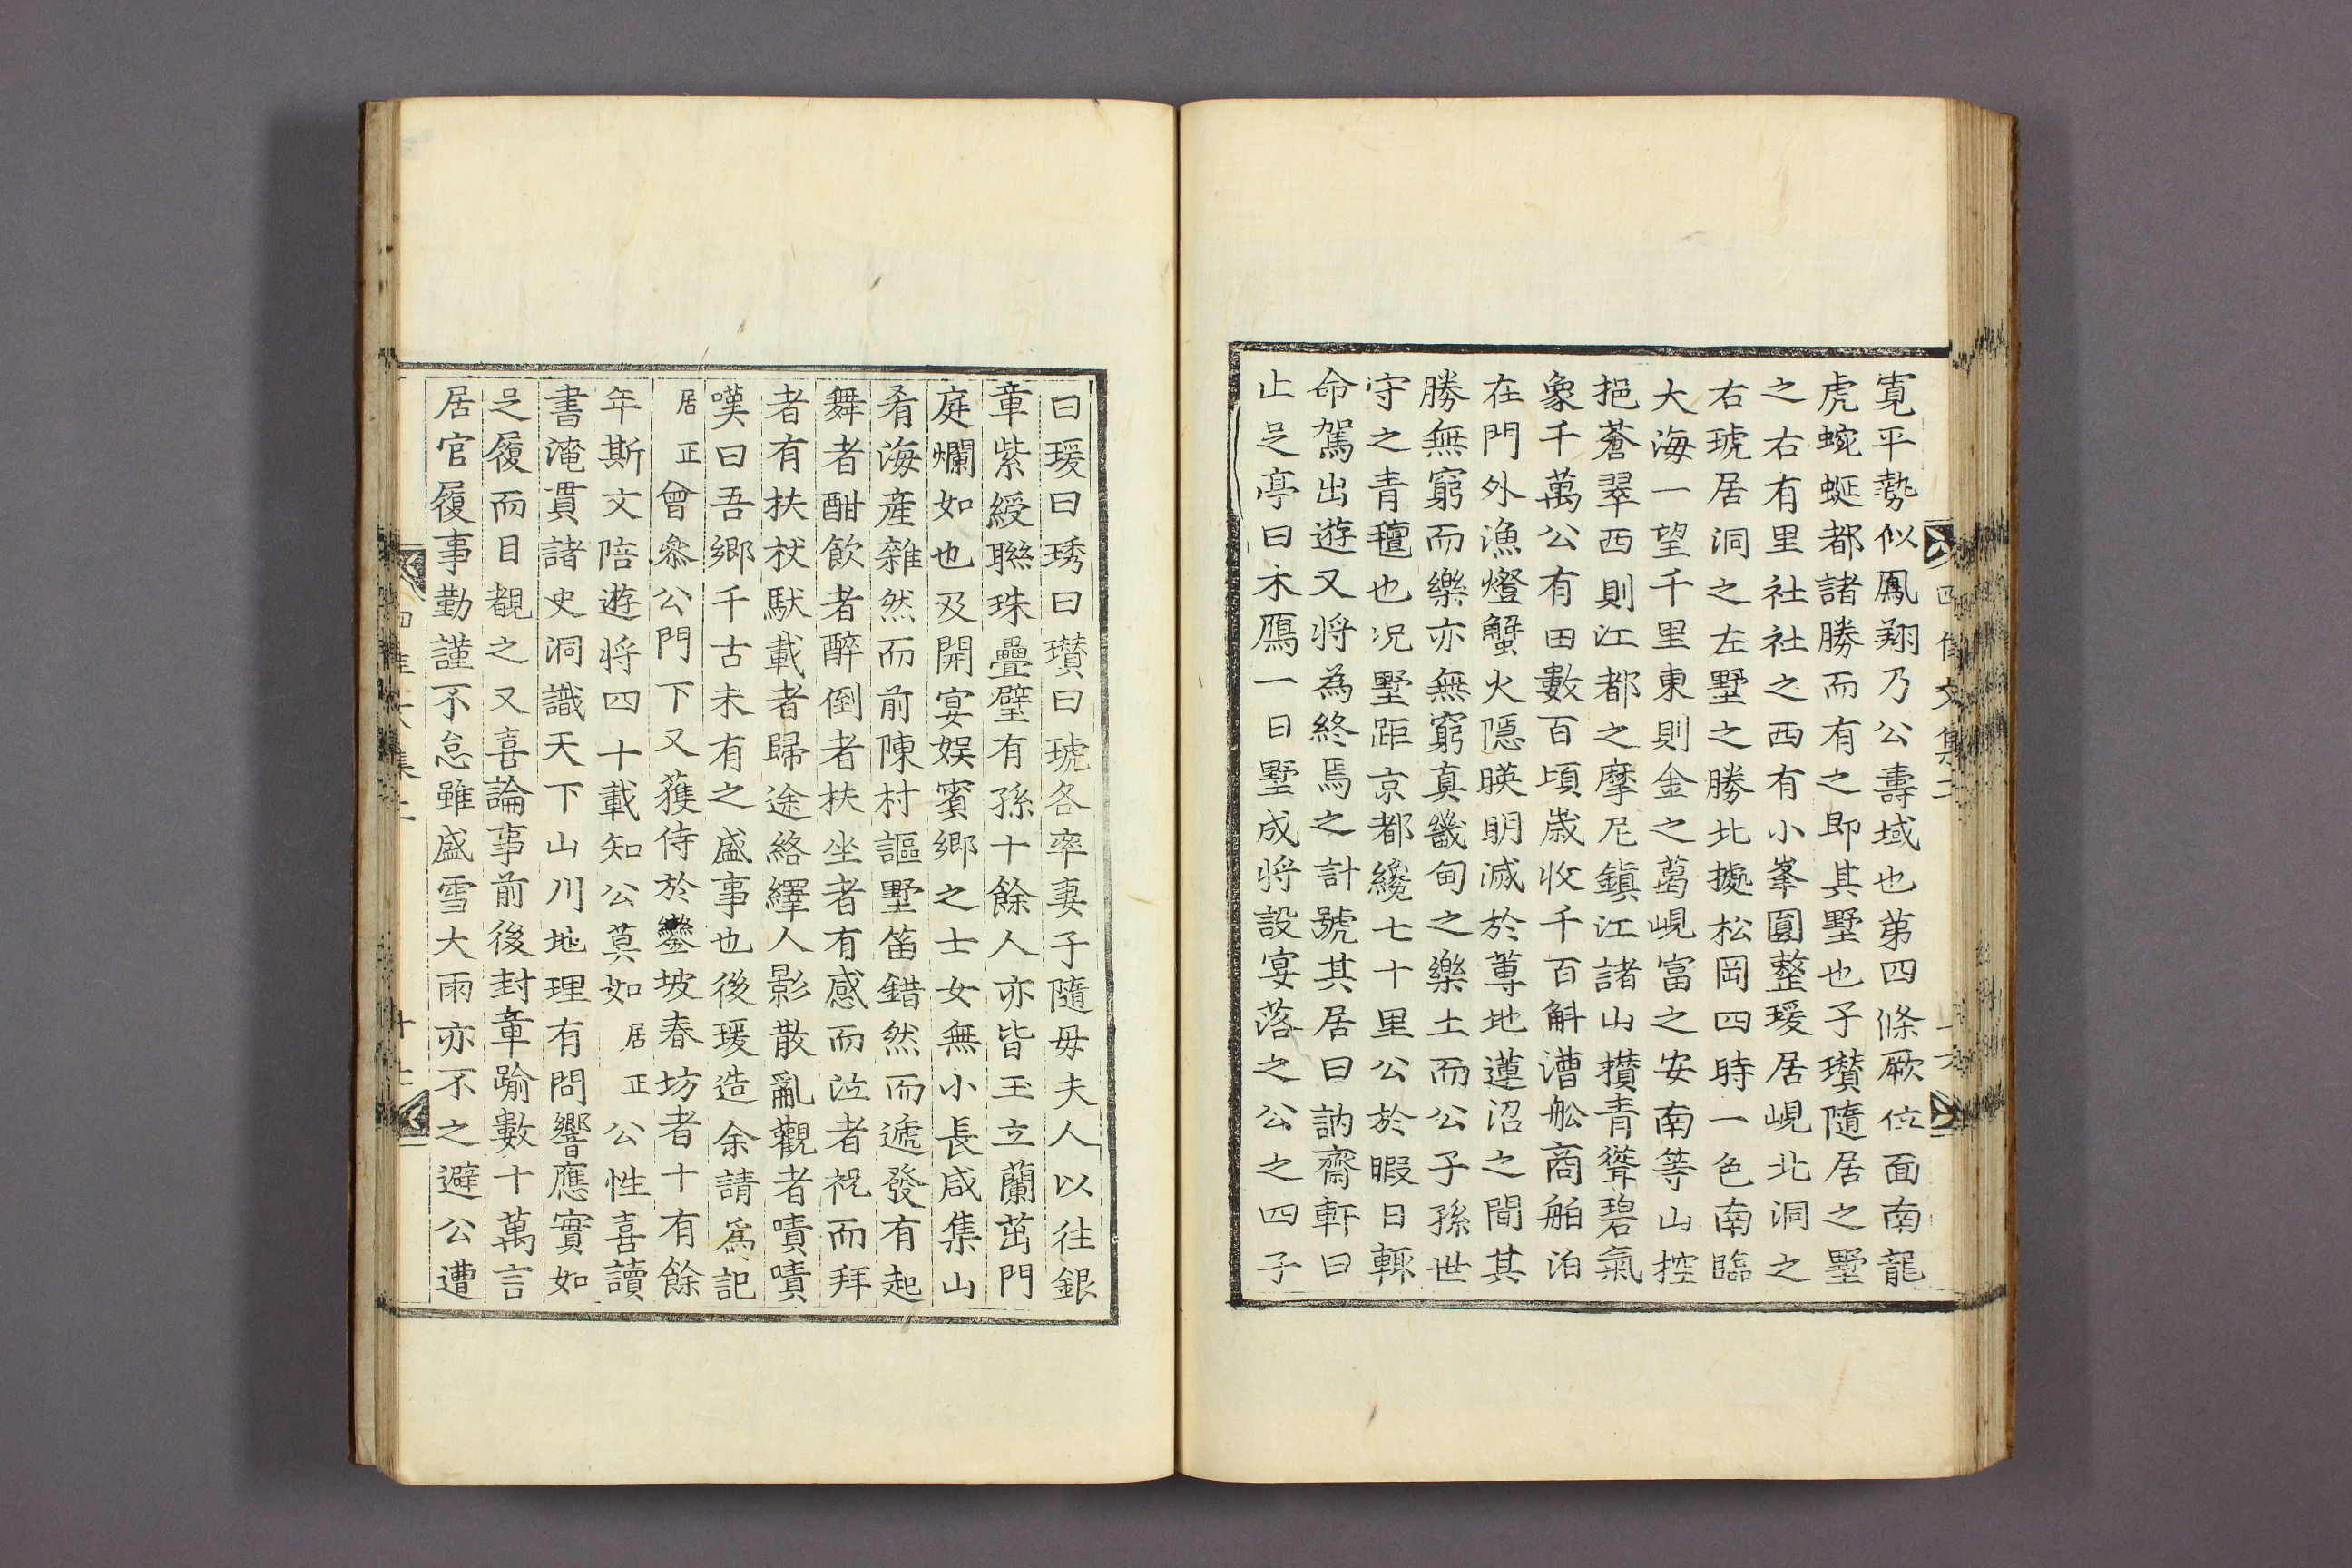 寛平勢似鳳翔乃公壽域也苐四條厥位面南龍
虎蜿蜒都諸勝而有之即其墅也子瓚隨居之墅
之右有里社社之西有小峯圓整瑗居峴北洞之
右琥居洞之左墅之勝北據松岡四時一色南臨
大海一望千里東則金之蔔峴富之安南等山控
挹蒼翠西則江都之摩尼鎭江諸山攅青聳碧氣
象千萬公有田數百頃歳收千百斛漕舩商舶泊
在門外漁燈蟹火隱暎明滅於蓴地蓮沼之間其
勝無窮而樂亦無窮真畿甸之樂土而公子孫世
守之青氊也况墅距京都纔七十里公於暇日輒
命駕出遊又将為終焉之計號其居曰訥齋軒曰
止足亭曰木鴈一日墅成将設宴落之公之四子
曰瑗曰琇曰瓚曰琥各卒妻子隨毋夫人以往銀
章紫綬聮珠疊璧有孫十餘人亦皆玉立蘭茁門
庭爛如也及開宴娛賓鄉之士女無小長咸集山
肴海産雜然而前陳村謳墅笛錯然而遞發有起
舞者酣飲者醉倒者扶坐者有感而泣者祝而拜
者有扶杖馱載者歸途絡繹人影散亂觀者嘖嘖
嘆曰吾鄉千古未有之盛事也後瑗造余請爲記
居正曾叅公門下又獲侍於鑾坡春坊者十有餘
年斯文陪遊将四十載知公莫如居正公性喜讀
書淹貫諸史洞識天下山川地理有問響應實如
足履而目覩之又喜論事前後封章踰數十萬言
居官履事勤謹不怠雖盛雪大雨亦不之避公遭